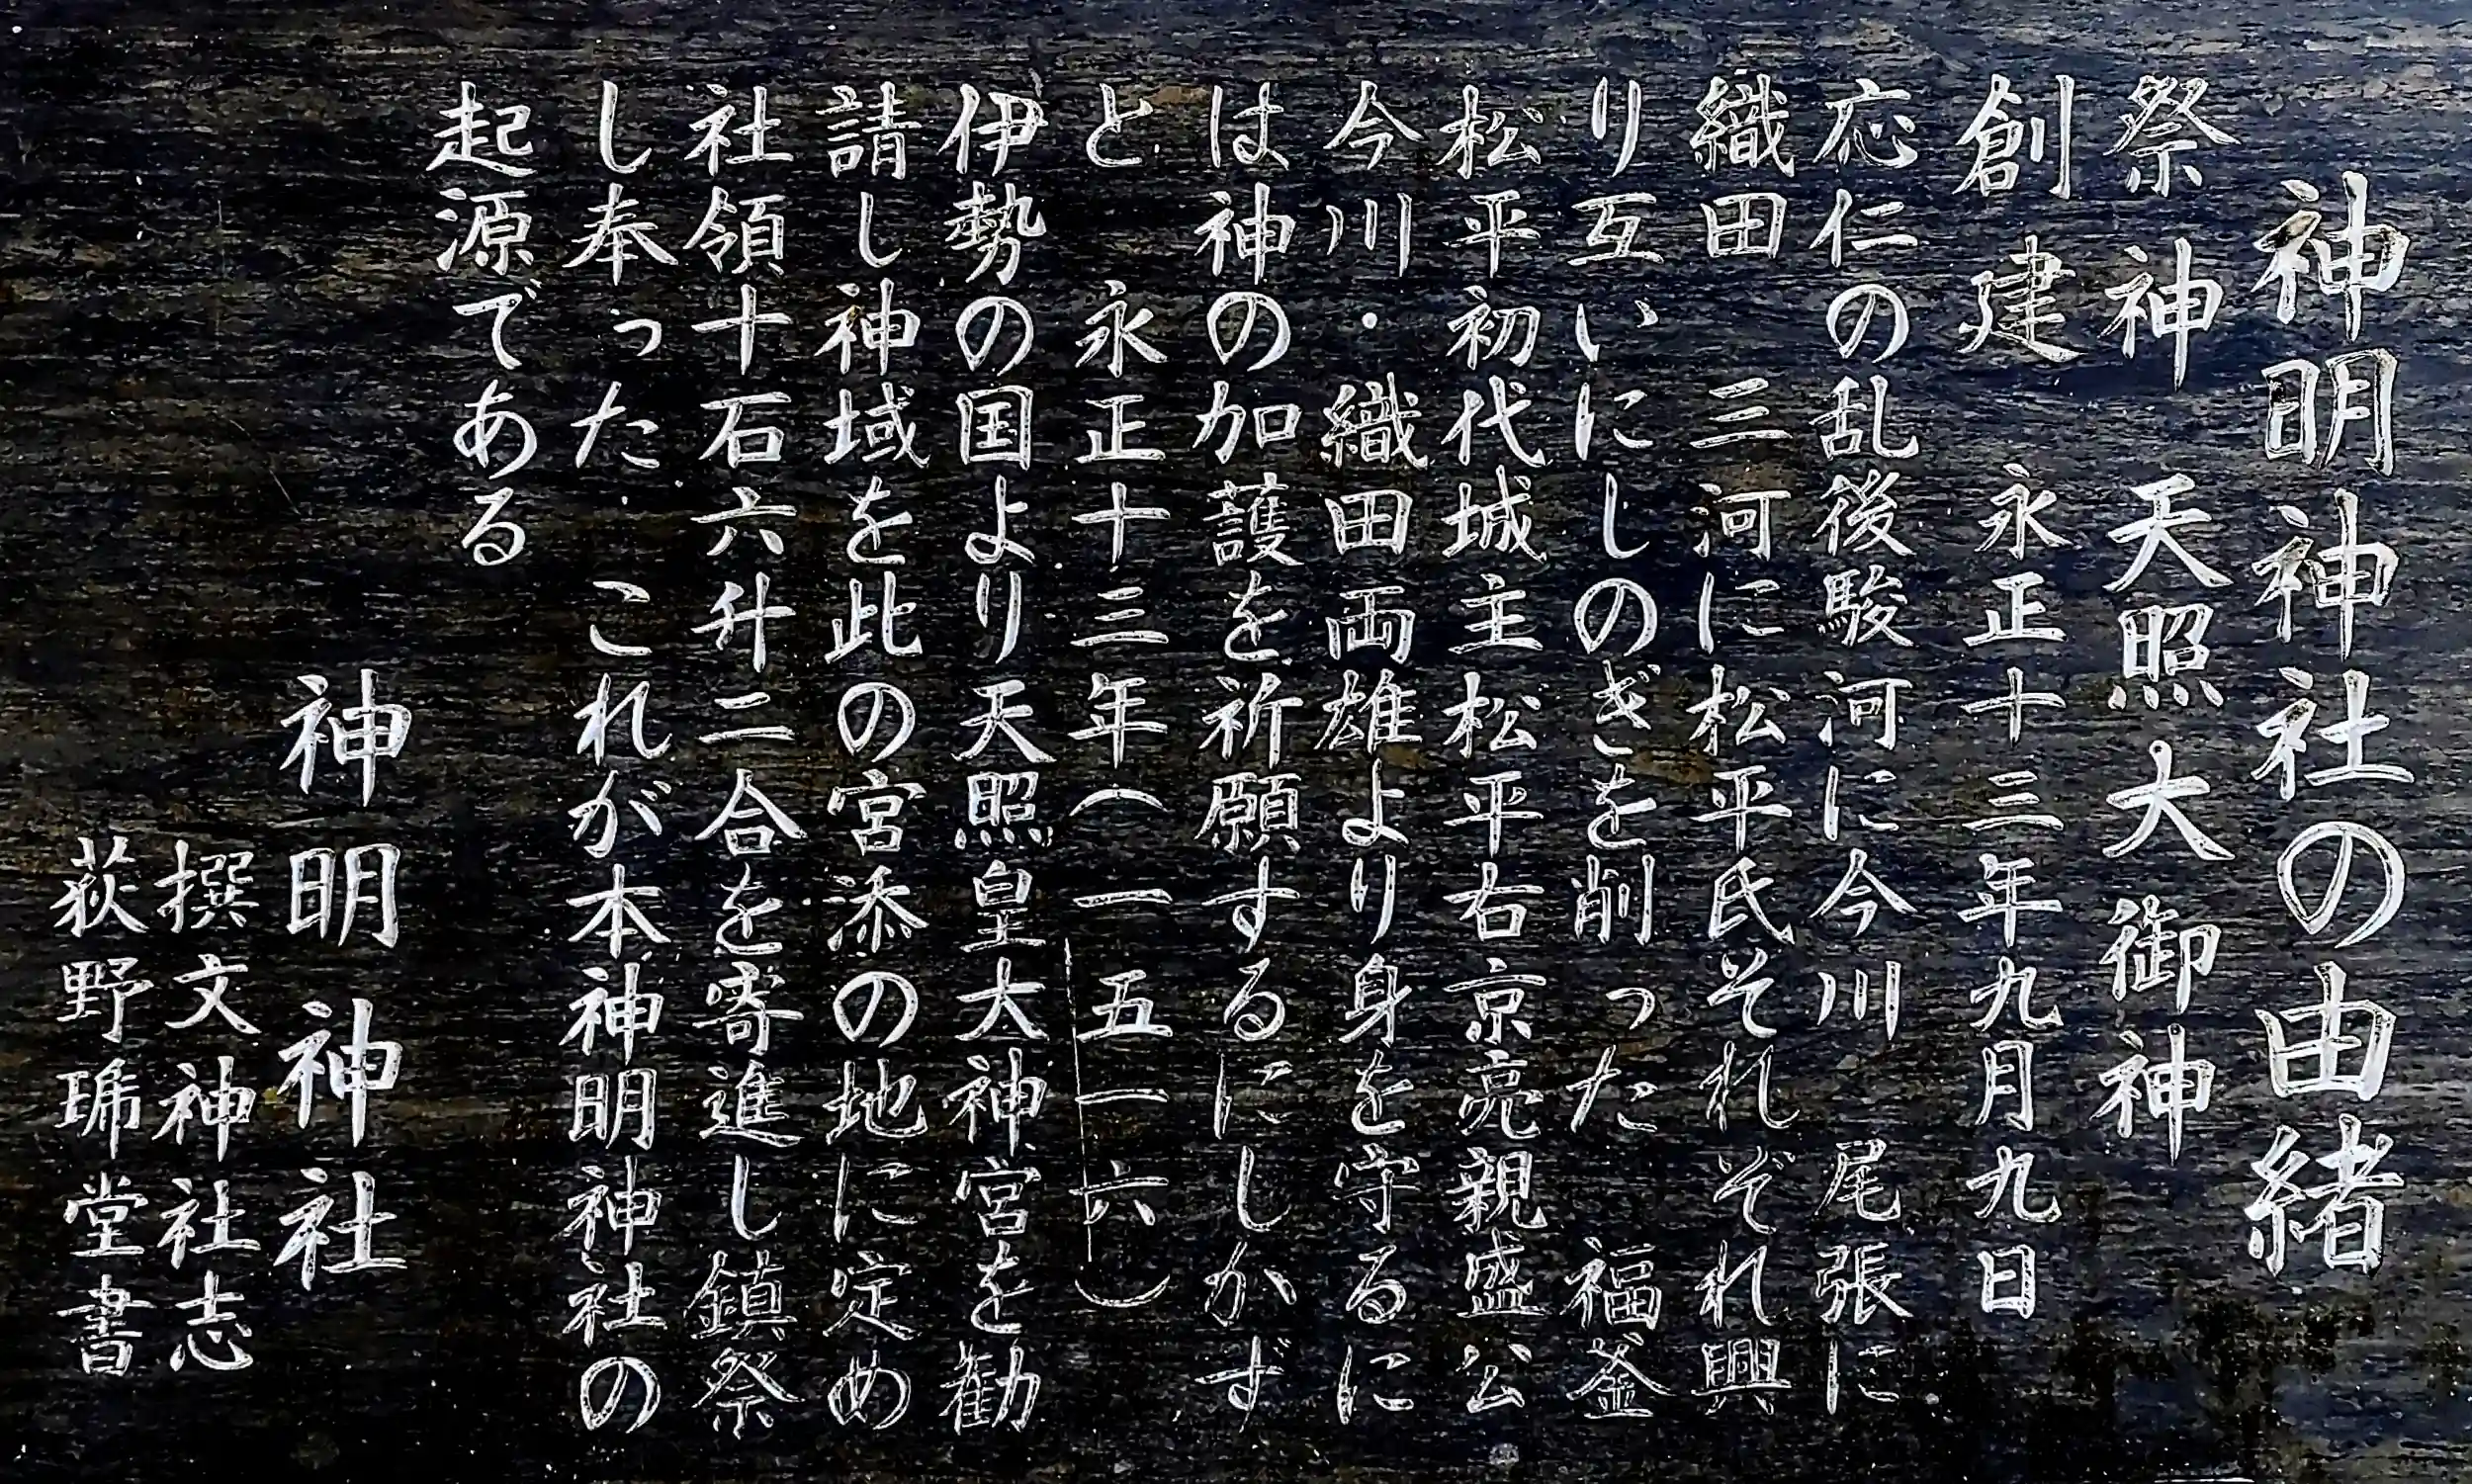 神明神社の由緒
祭神　天照大御神
創建　永正十三年九月九日
応仁の乱後駿河に今川　尾張に
織田　三河に松平氏それぞれ興
り互いにしのぎを削った　福釜
松平初代城主松平右京亮親盛公
今川・織田両雄より身を守るに
は神の加護を祈願するにしかず
と　永正十三年（一五一六）
伊勢の国より天照皇大神宮を勧
請し神域を此の宮添の地に定め
社領十石六升二合を寄進し鎮祭
し奉った　これが本神明神社の
起源である
神明神社
撰文神社志
荻野琋堂書